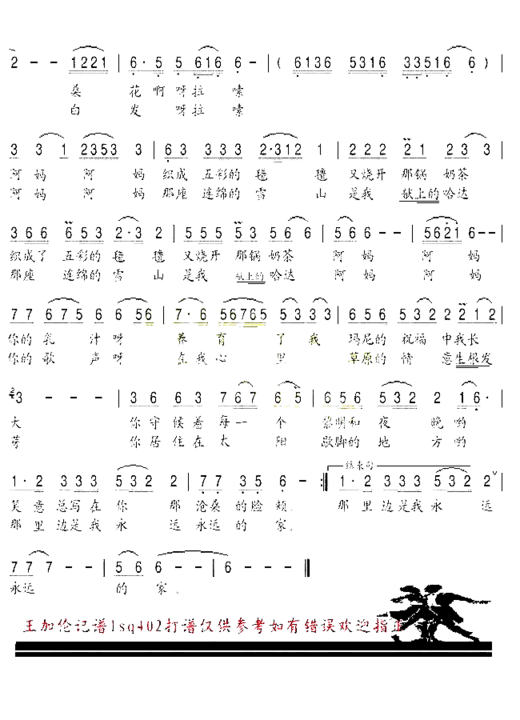 2 - - 1221 | 6· 5 5 616 6 - - | ( 6136 5316 33516 6 ) |
桑 花 啊 呀 拉 嗦
白 发 呀 拉 嗦
3 3 1 2353 3 | 6 3 3 3 2·312 | 3 5 5 2 21 2 3 3 |
阿 妈 阿 妈 织成 五彩的 氆 氇 又烧开 那锅 奶茶
阿 妈 阿 妈 那座 连绵的 雪 山 是我 献上的哈达
3 6 6 653 2·3 2 | 5 5 5 5 3 5 5 6 | 5 5 6 - | 5 5621 6 - - |
织成了 五彩的 氆 氇 又烧开 那锅 奶茶 阿 妈 阿 妈
那座 连绵的 雪 山 是我 献上的哈达 阿 妈 阿 妈
你的 乳 汁 呀 养 育 了 我 玛尼的 祝福 中我长
你的 歌 声 呀 在我 心 里 草原的 情 意生根发
3 - - - | 3 6 2 3 767 | 6 5 6 5 532 2 16· |
大 你 守 候 着 每 一 个 黎明和 夜 晚 哟
芽 你 居 住 在 太 阳 歇脚的 地 方 哟
结束句
1· 2 333 532 2 | 7 7 7 3 5 6 - :‖ 1· 2 333 532 2 |
笑 意 总写在 你 那 沧桑 的脸 颊. 那 里 边是我 永 远
那 里 边是我 永 远 永远 的 家.
7 7 7 - - | 5 6 - 2 - | 6 - - - ‖
永远 的 家.
王加伦记谱lsq402打谱仅供参考如有错误欢迎指正